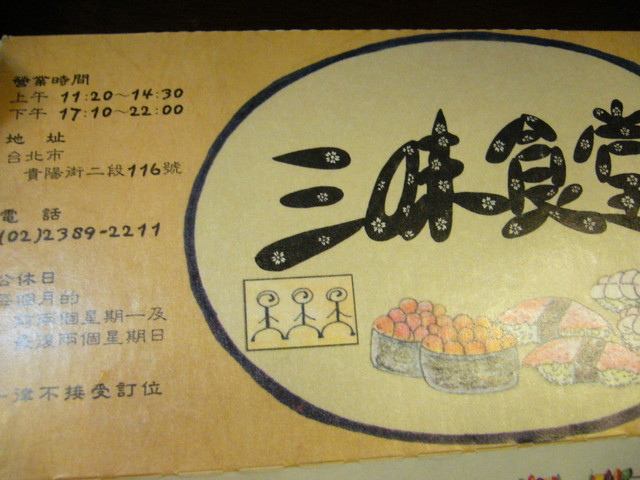 營業時間
上午 11:20~14:30
下午 17:10~22:00
地 址
台北市
貴陽街二段116號
電 話
(02)2389-2211
公休日
每個月的
前兩個星期一及
最後兩個星期日
一律不接受訂位
三味食堂